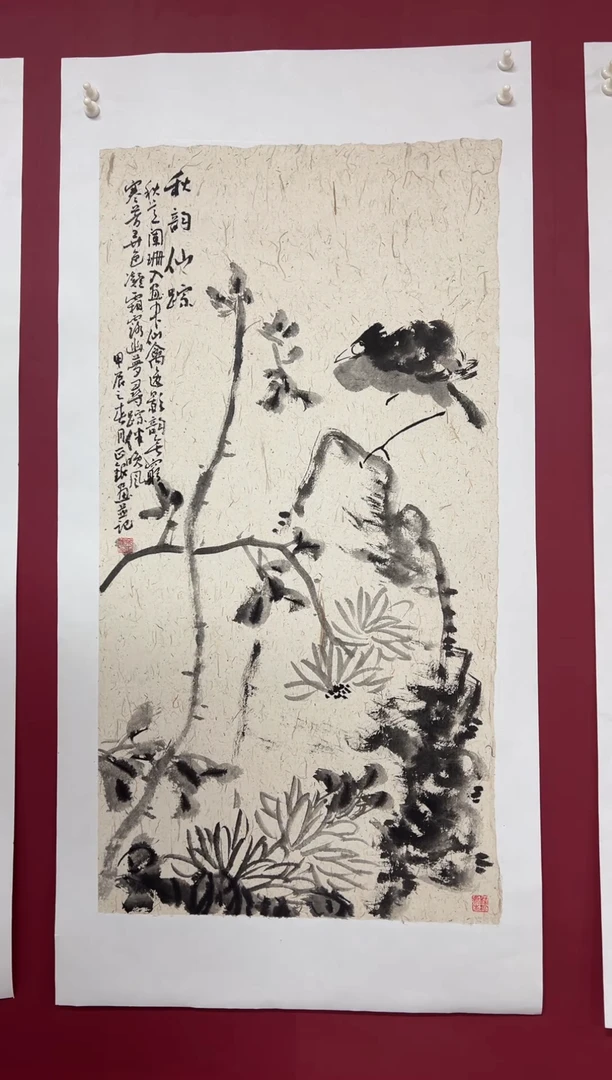 秋韵仙踪
秋意阑珊入画中仙禽逸影韵无穷
寒芳弄色凝霜露幽梦寻踪伴晚风
甲辰之春月正银画并记